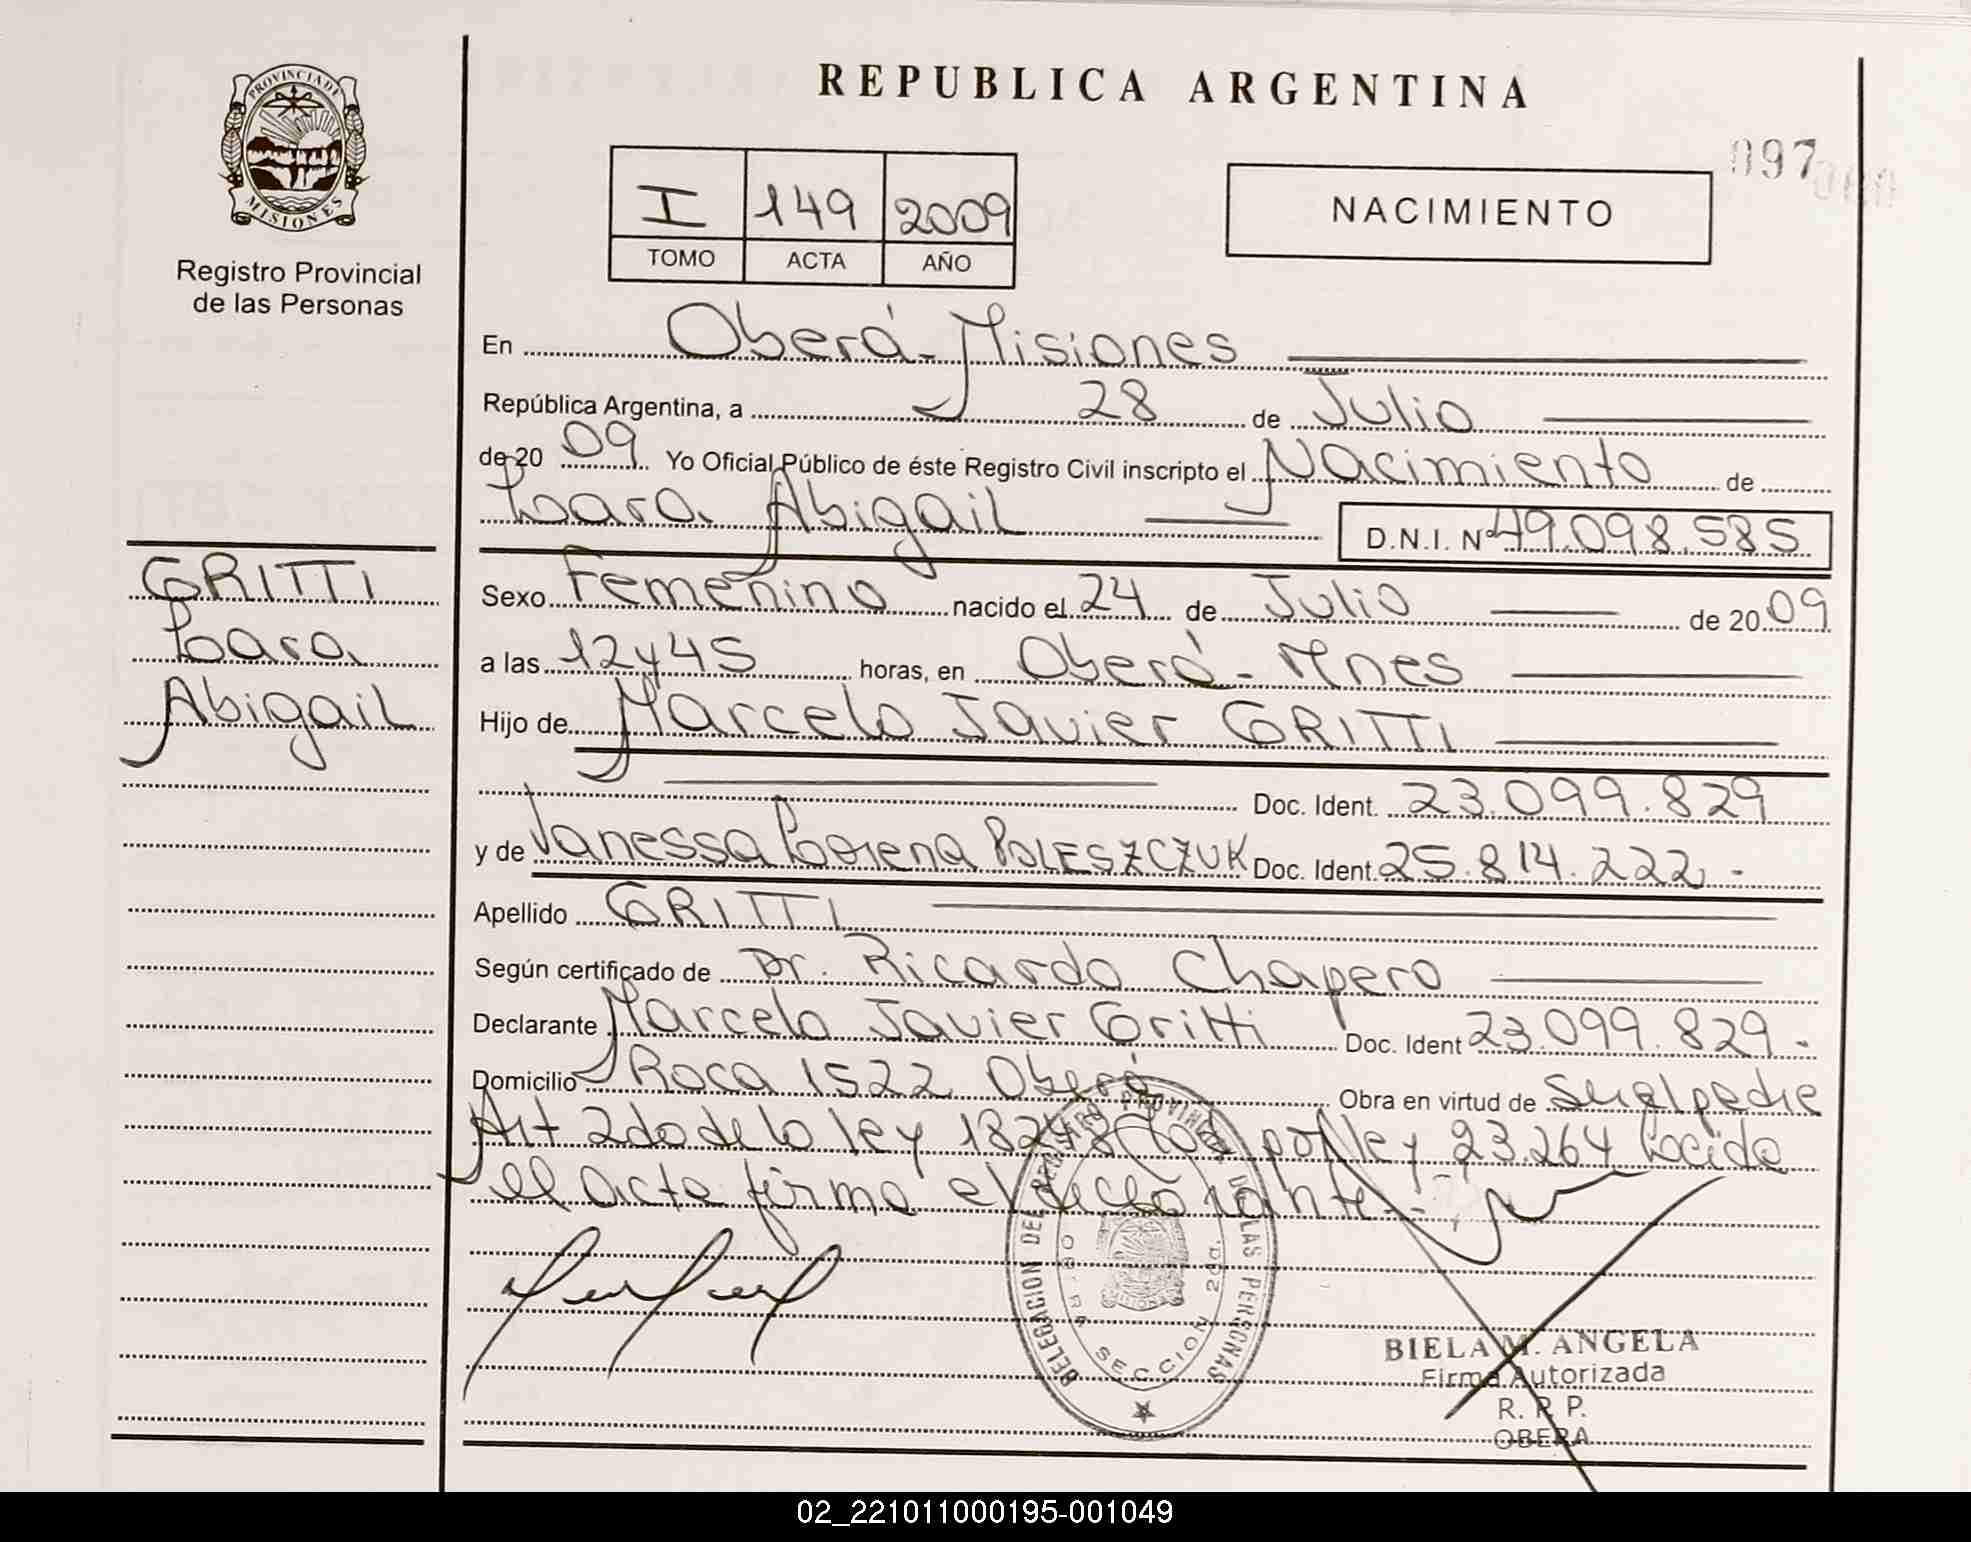 REPUBLICA ARGENTINA
PROVINCIA DE
MISIONES
Registro Provincial
de las Personas
097
I 149 2009
TOMO ACTA AÑO
NACIMIENTO
En Oberá - Misiones
República Argentina, a 28 de Julio
de 20 09 Yo Oficial Público de éste Registro Civil inscripto el Nacimiento de
Lara Abigail D.N.I. Nº 49.098.585
GRITTI
Lara
Abigail
Sexo Femenino nacido el 24 de Julio de 20 09
a las 12 y 45 horas, en Oberá - Mnes
Hijo de Marcelo Javier GRITTI
Doc. Ident. 23.099.829
y de Vanessa Lorena POLESZCZUK Doc. Ident. 25.814.222.-
Apellido GRITTI
Según certificado de Dr. Ricardo Chapero
Declarante Marcelo Javier Gritti Doc. Ident 23.099.829.-
Domicilio Roca 1522 Oberá Obra en virtud de
Art 2do de la ley 18248 por ley 23.264
el acta firma el declarante
DELEGACION DEL REGISTRO PROVINCIAL DE LAS PERSONAS
OBERA SECCION 2da.
BIELA M. ANGELA
Firma Autorizada
R. R. P.
OBERA
02_221011000195-001049